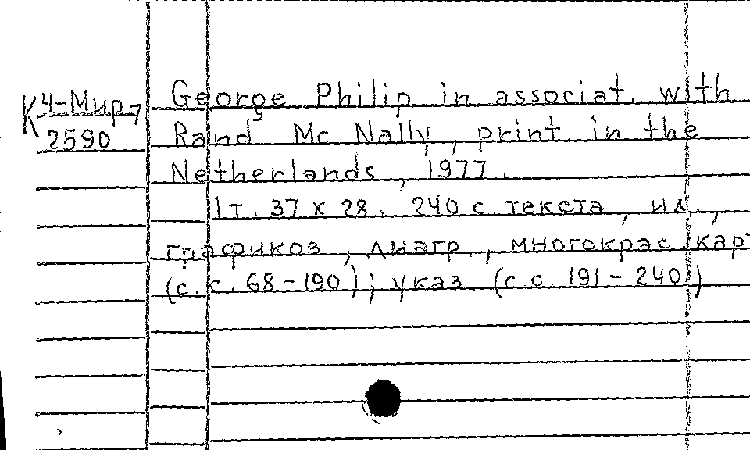 George Philip in associat. with
К Ч-Мир,
Rand Mc Nally, print in the
2590
Netherlands, 1977.
1т. 37 х 28. 240 с текста, ил,
графикоз, диагр., многокрас. кар
(с. с. 68-190); указ (с с. 191-240)